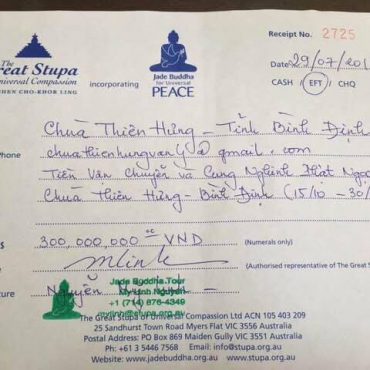 The
Great Stupa
Universal Compassion
CHEN CHO-KHOR LING
incorporating
Jade Buddha
for Universal
PEACE
Receipt No. 2725
Date 29/07/201
CASH / EFT / CHQ
Chùa Thiên Hưng - Tỉnh Bình Định
Phone chuathienhungvany@gmail.com
Tiền Vận Chuyển và Cung Nghinh Phật Ngọc
Chùa Thiên Hưng - Bình Định (15/10 - 30/
300,000,000 VND (Numerals only)
(Authorised representative of The Great S
Nguyễn
Jade Buddha Tour
My Linh Nguyen
+1 (714) 876-4349
mylinh@stupa.org.au
The Great Stupa of Universal Compassion Ltd ACN 105 403 209
25 Sandhurst Town Road Myers Flat VIC 3556 Australia
Postal Address: PO Box 869 Maiden Gully VIC 3551 Australia
Ph: +61 3 5446 7568 Email: info@stupa.org.au
Website: www.jadebuddha.org.au www.stupa.org.au